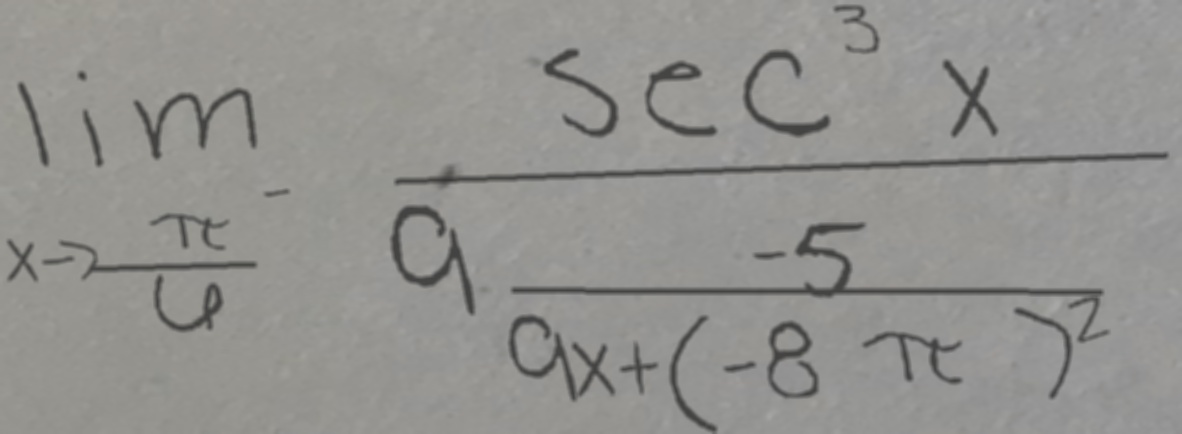 lim x→π/6⁻ sec³ x / (9 (-5 / (9x+(-8 π)²)))